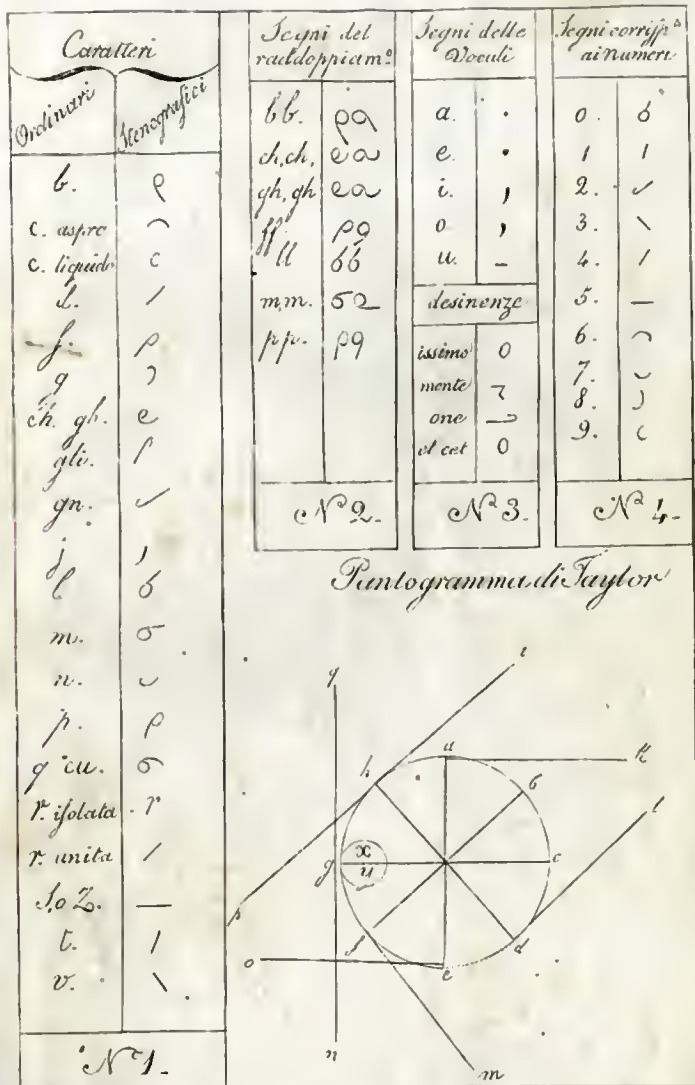 Caratteri
Ordinari
Stenografici
b.
c. aspro
c. liquido
d.
f.
g
ch. gh.
gli.
gn.
j
l
m.
n.
p.
q cu.
r. isolata
r. unita
S, o Z.
t.
v.
Nº 1.
Segni del
raddoppiam.º
bb.
ch, ch,
gh, gh
ff
ll
m, m.
pp.
Nº 2.
Segni delle
Vocali
a.
e.
i.
o.
u.
desinenze
issimo
mente
one
et cet
Nº 3.
Segni corrisp.
ai Numeri
0.
1
2.
3.
4.
5.
6.
7.
8.
9.
Nº 4.
Pantogramma di Taylor
q
i
h
a
k
b
l
x
g
u
c
p
f
d
o
e
n
m